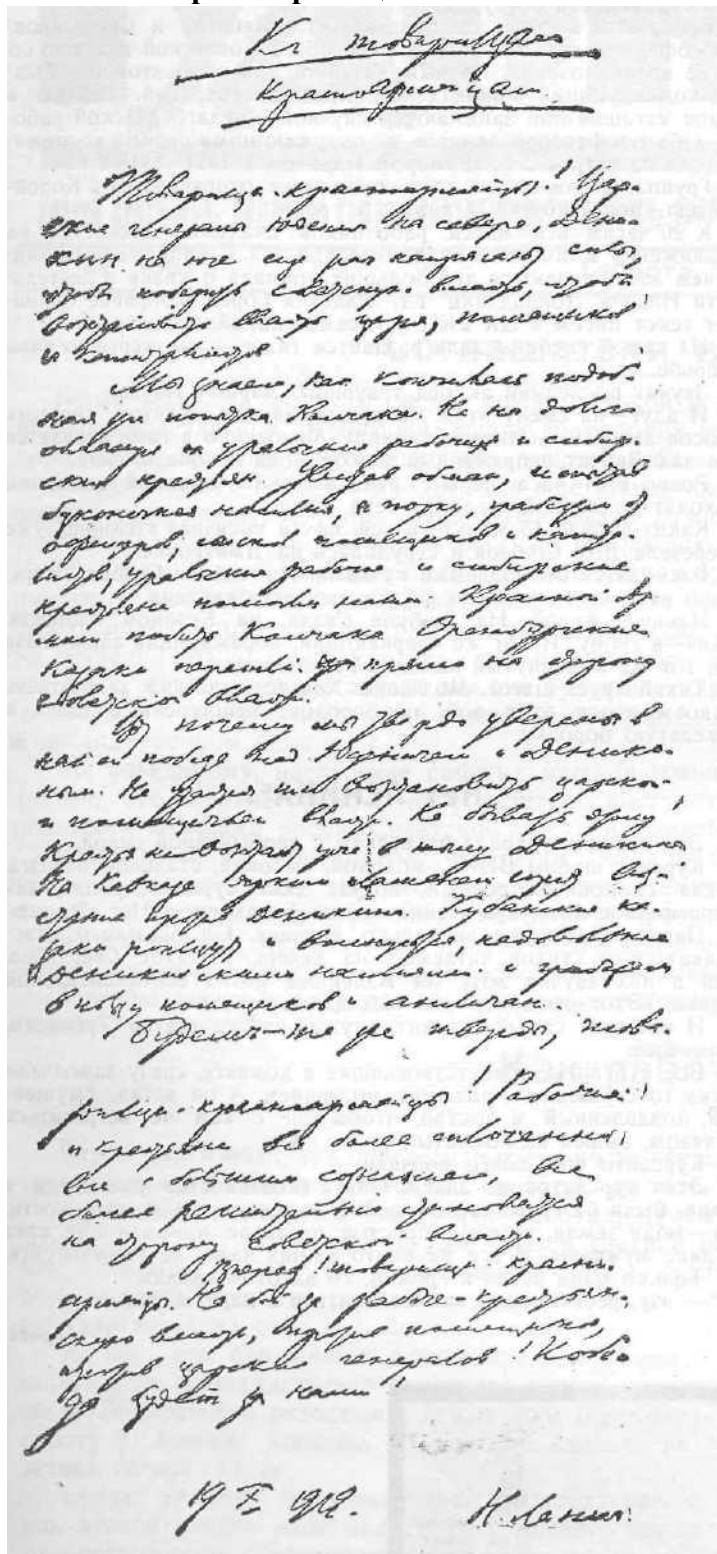 К товарищам
красноармейцам.
Товарищи красноармейцы! Цар-
ские генералы Юденич на севере, Дени-
кин на юге еще раз напрягают силы,
чтобы победить Советскую власть, чтобы
восстановить власть царя, помещиков
и капиталистов.
Мы знаем, как кончилась подоб-
ная же попытка Колчака. Не на долго
обманул он уральских рабочих и сибир-
ских крестьян. Увидав обман, испытав
бесконечные насилия, порку, грабежи от
офицеров, сынков помещиков и капита-
листов, уральские рабочие и сибирские
крестьяне помогли нашей Красной Ар-
мии побить Колчака. Оренбургские
казаки перешли прямо на сторону
Советской власти.
Вот почему мы твердо уверены в
нашей победе над Юденичем и Деники-
ным. Не удастся им восстановить царской
и помещичьей власти. Не бывать этому!
Крестьяне восстают уже в тылу Деникина.
На Кавказе ярким пламенем горит вос-
стание против Деникина. Кубанские ка-
заки ропщут и волнуются, недовольные
деникинскими насилиями и грабежом
в пользу помещиков и англичан.
Будемте-же тверды, това-
рищи красноармейцы! Рабочие
и крестьяне все более сплоченно,
все более сознательно, все
более решительно становятся
на сторону Советской власти.
Вперед, товарищи красно-
армейцы! На бой за рабоче-крестьян-
скую власть, против помещиков,
против царских генералов! Побе-
да будет за нами!
19 X 1919. Н. Ленин.